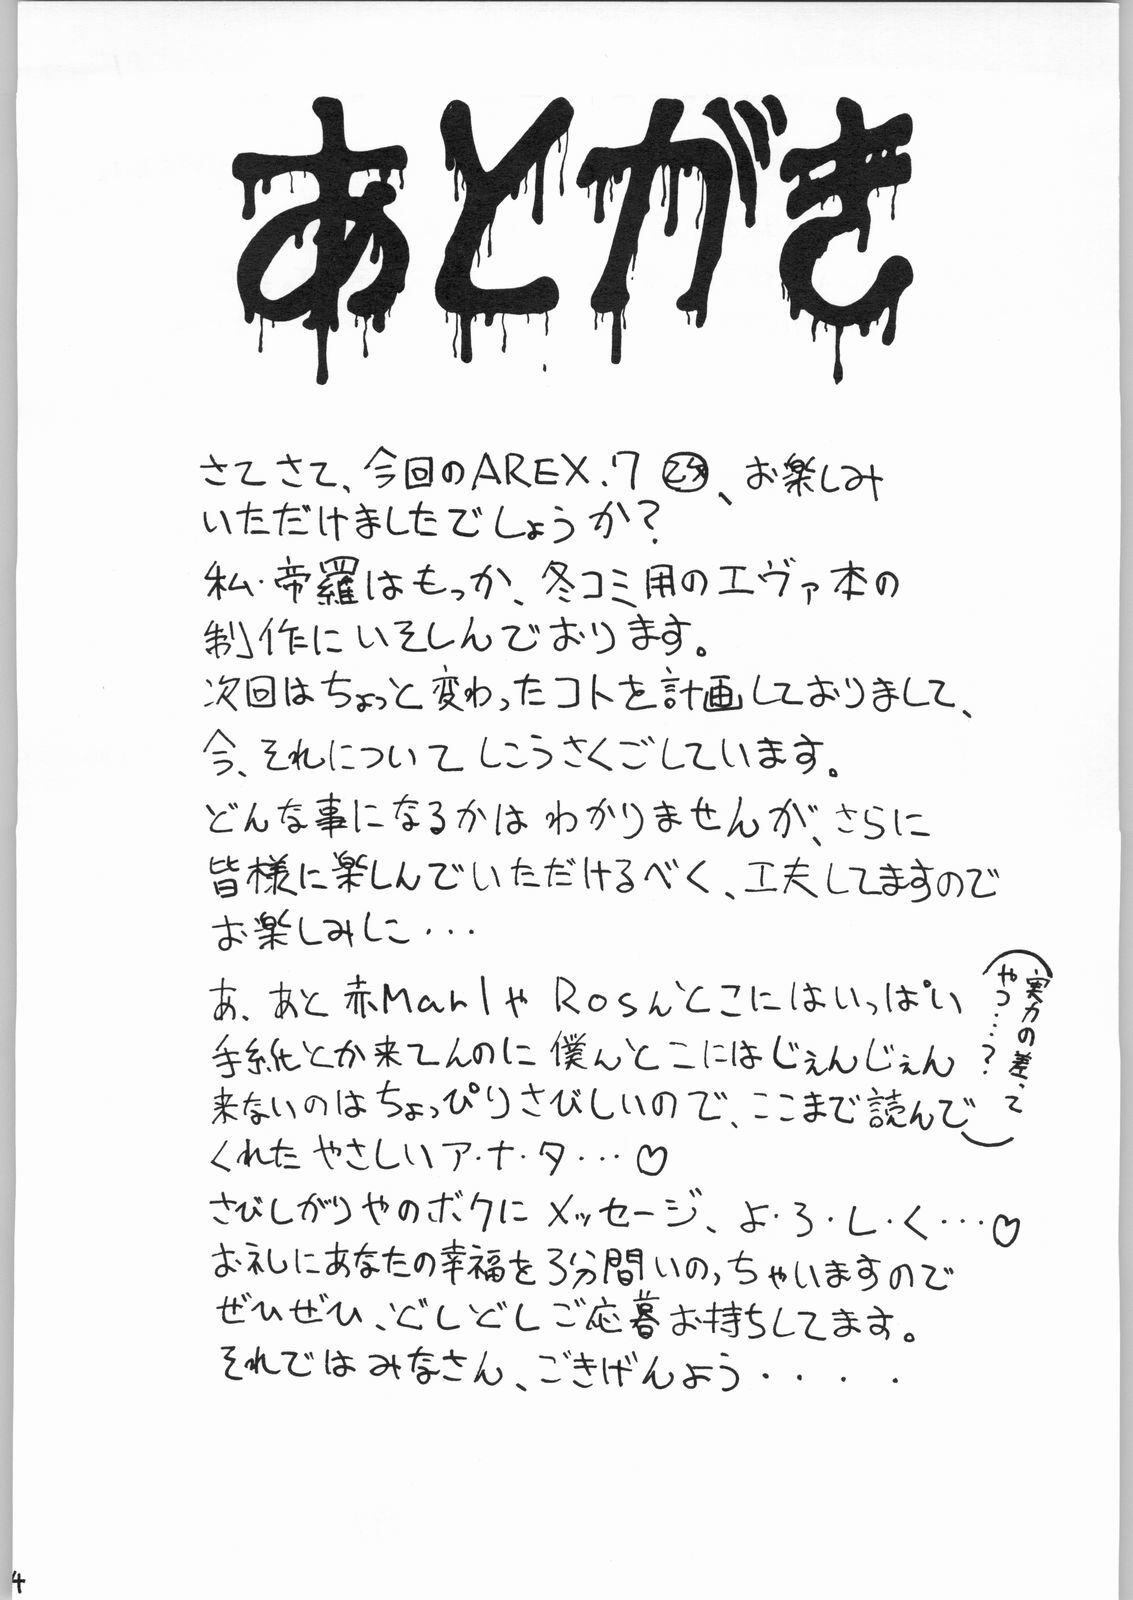 あとがき
さてさて、今回のAREX.7 、お楽しみ
いただけましたでしょうか?
私・帝羅はもっか、冬コミ用のエヴァ本の
制作にいそしんでおります。
次回はちょっと変わったコトを計画しておりまして、
今、それについてしこうさくごしています。
どんな事になるかはわかりませんが、さらに
皆様に楽しんでいただけるべく、工夫してますので
お楽しみしに・・・
あ、あと赤MarlやRosんとこにはいっぱい
手紙とか来てんのに僕んとこにはじぇんじぇん
来ないのはちょっぴりさびしいので、ここまで読んで
くれたやさしいア・ナ・タ・・・♡
さびしがりやのボクにメッセージ、よ・ろ・し・く・・・♡
お礼にあなたの幸福を3分間いのっちゃいますので
ぜひぜひ、どしどしご応募お持ちしてます。
それではみなさん、ごきげんよう・・・・
実力の差、って
やつ・・・?
4